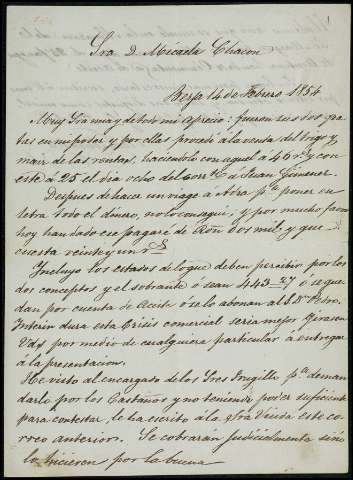 Sra. d. Micaela Chacon
Berja 14 de Febrero 1854
Muy Sra mia y de todo mi aprecio: fueron sus dos gra-
tas en mi poder y por ellas procedí á la venta del trigo y
maiz de las rentas, haciendolo con aquel a 46 r. y con
este á 25 el dia ocho del corr.te á Juan Gimenez.
Despues de haca un viage á Adra p.a poner en
letra todo el dinero, no lo consegui, y por mucho favor
hoy han dado ese pagaré de Rôn dos mil, y que
cuesta veinte y un r.s
Incluyo los estados de lo que deben percibir por los
dos conceptos y el sobrante ó sean 443 27 ó se que
dan por cuenta de Aceite ó se lo abonan al S.or Pedro.
Interin dura esta Crisis comercial seria mejor girasen
Vds por medio de cualquiera particular a entregar
á la presentacion.
He visto al encargado de los Sres Trugillo p.a deman
darlo por los Castaños y no teniendo poder suficiente
para contestar, le ha escrito á la Sra Viuda este co-
rreo anterior. Se cobrarán judicialmente sinó
lo hicieren por la buena